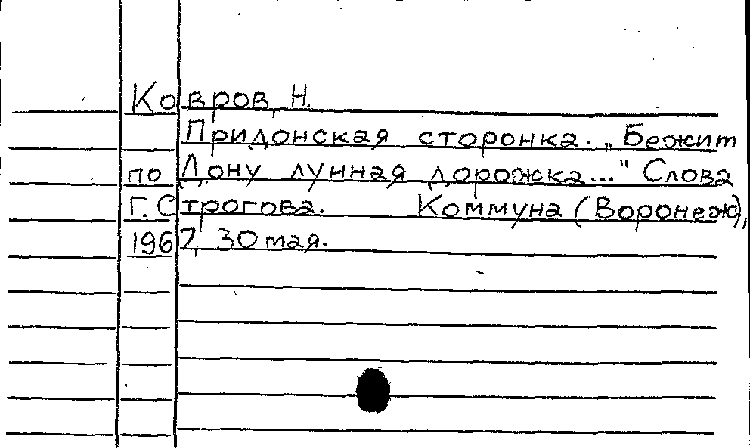 Ковров Н.
Придонская сторонка. „Бежит
по Дону лунная дорожка..." Слова
Г. Строгова. Коммуна (Воронеж),
1967, 30 мая.